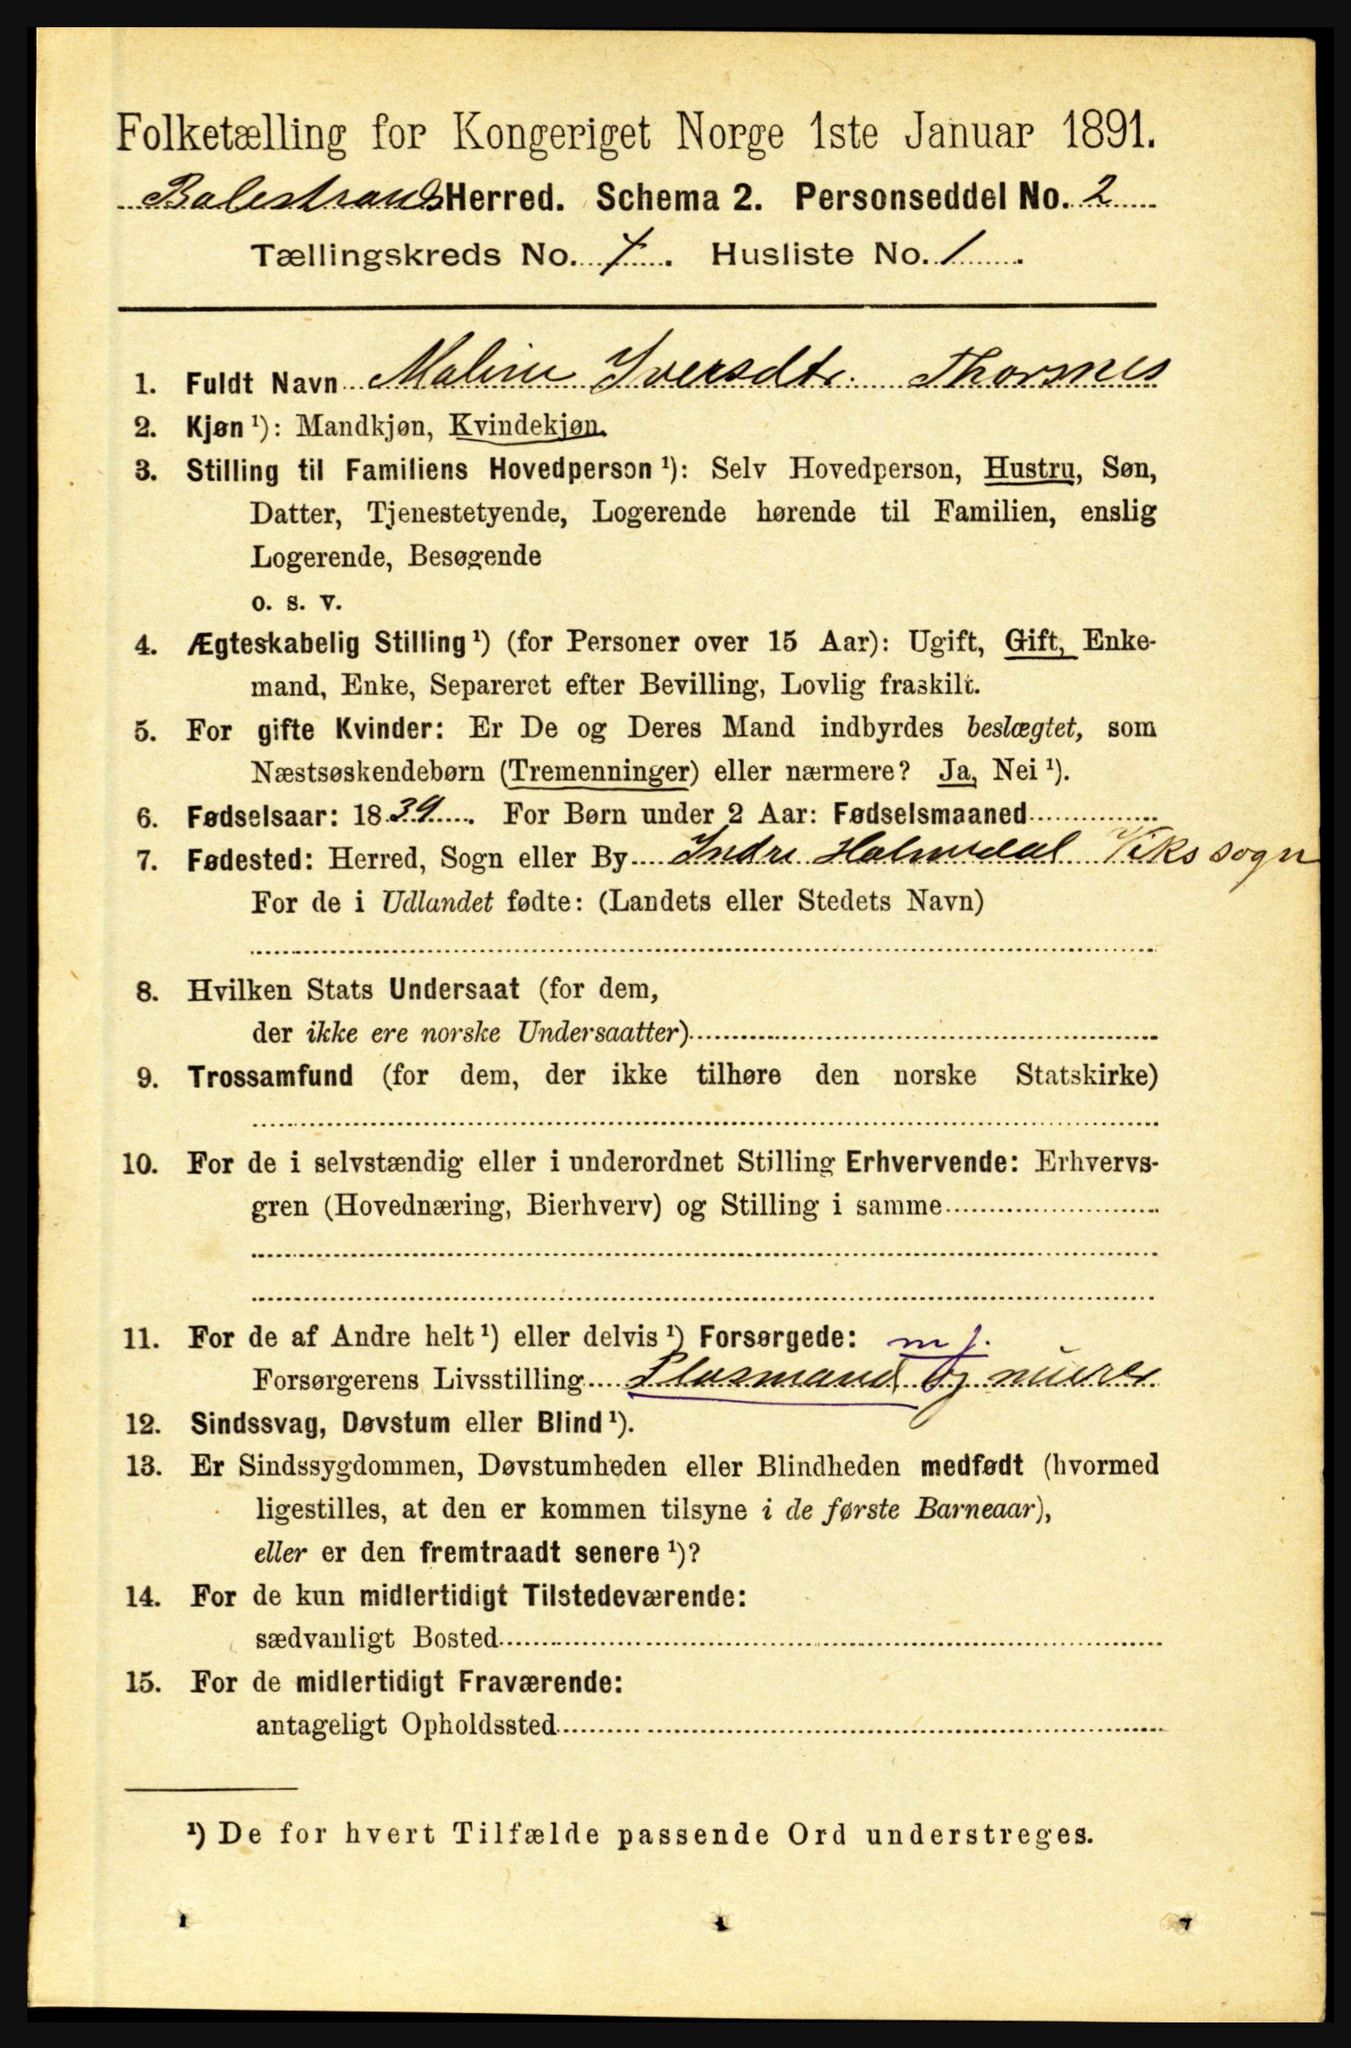 Folketælling for Kongeriget Norge 1ste Januar 1891.
Balestrands Herred. Schema 2. Personseddel No. 2
Tællingskreds No. 7. Husliste No. 1.
1. Fuldt Navn Maline Iversdtr. Thorsnes
2. Kjøn ¹): Mandkjøn, Kvindekjøn.
3. Stilling til Familiens Hovedperson ¹): Selv Hovedperson, Hustru, Søn,
Datter, Tjenestetyende, Logerende hørende til Familien, enslig
Logerende, Besøgende
o. s. v.
4. Ægteskabelig Stilling ¹) (for Personer over 15 Aar): Ugift, Gift, Enke-
mand, Enke, Separeret efter Bevilling, Lovlig fraskilt.
5. For gifte Kvinder: Er De og Deres Mand indbyrdes beslægtet, som
Næstsøskendebørn (Tremenninger) eller nærmere? Ja, Nei ¹).
6. Fødselsaar: 1839. For Børn under 2 Aar: Fødselsmaaned
7. Fødested: Herred, Sogn eller By Indre Holmedal Viks sogn
For de i Udlandet fødte: (Landets eller Stedets Navn)
8. Hvilken Stats Undersaat (for dem,
der ikke ere norske Undersaatter)
9. Trossamfund (for dem, der ikke tilhøre den norske Statskirke)
10. For de i selvstændig eller i underordnet Stilling Erhvervende: Erhvervs-
gren (Hovednæring, Bierhverv) og Stilling i samme
11. For de af Andre helt ¹) eller delvis ¹) Forsørgede: m j.
Forsørgerens Livsstilling Plasmand og murer
12. Sindssvag, Døvstum eller Blind ¹).
13. Er Sindssygdommen, Døvstumheden eller Blindheden medfødt (hvormed
ligestilles, at den er kommen tilsyne i de første Barneaar),
eller er den fremtraadt senere ¹)?
14. For de kun midlertidigt Tilstedeværende:
sædvanligt Bosted
15. For de midlertidigt Fraværende:
antageligt Opholdssted
¹) De for hvert Tilfælde passende Ord understreges.